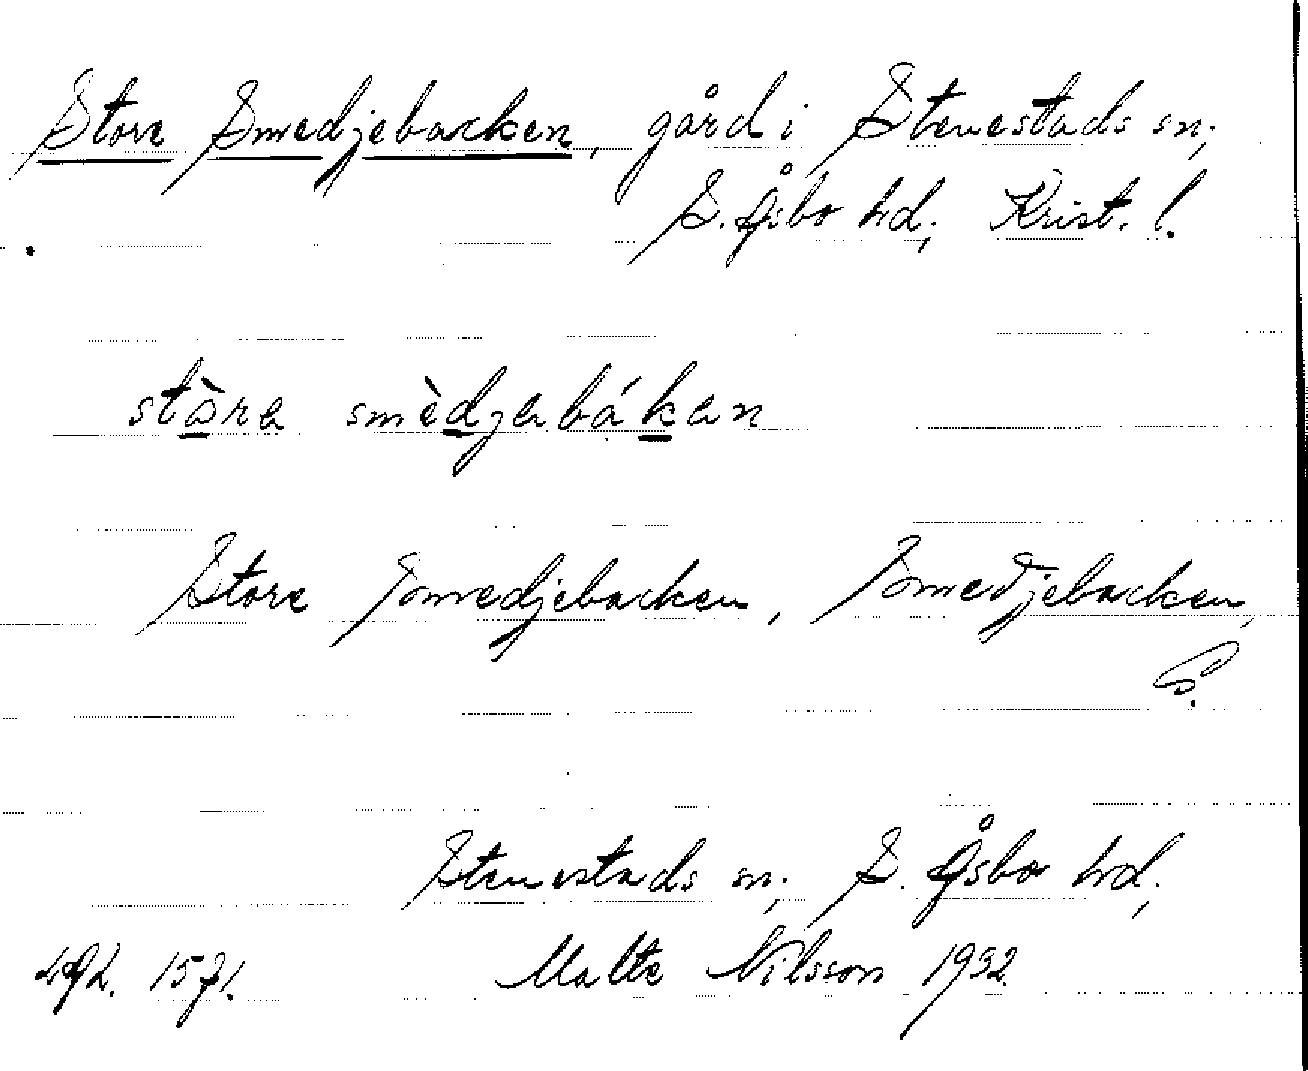 Store Smedjebacken, gård i Stenestads sn;
S. Åsbo hd; Krist. l.
stòre smèdjebáken
Store Smedjebacken, Smedjebacken,
S. 
Stenestads sn; S. Åsbo hd;
1571. Malte Nilsson 1932.